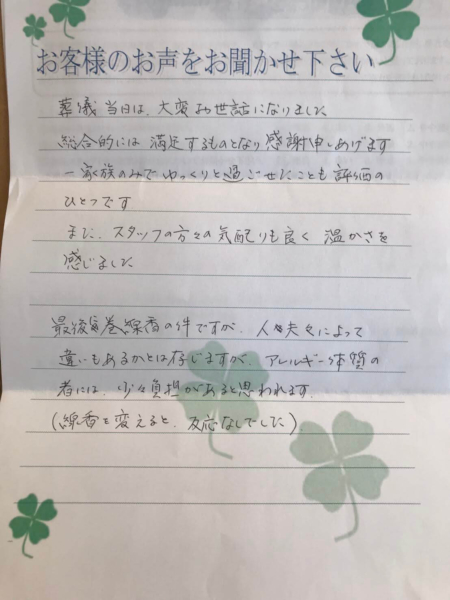 お客様のお声をお聞かせ下さい
葬儀当日は、大変お世話になりました
総合的には満足するものとなり感謝申しあげます
一家族のみでゆっくりと過ごせたことも評価の
ひとつです
また、スタッフの方々の気配りも良く 温かさを
感じました
最後 巻線香の件ですが、人夫々によって
違いもあるかとは存じますが、アレルギー体質の
者には、少々負担があると思われます。
(線香を変えると、反応なしでした)